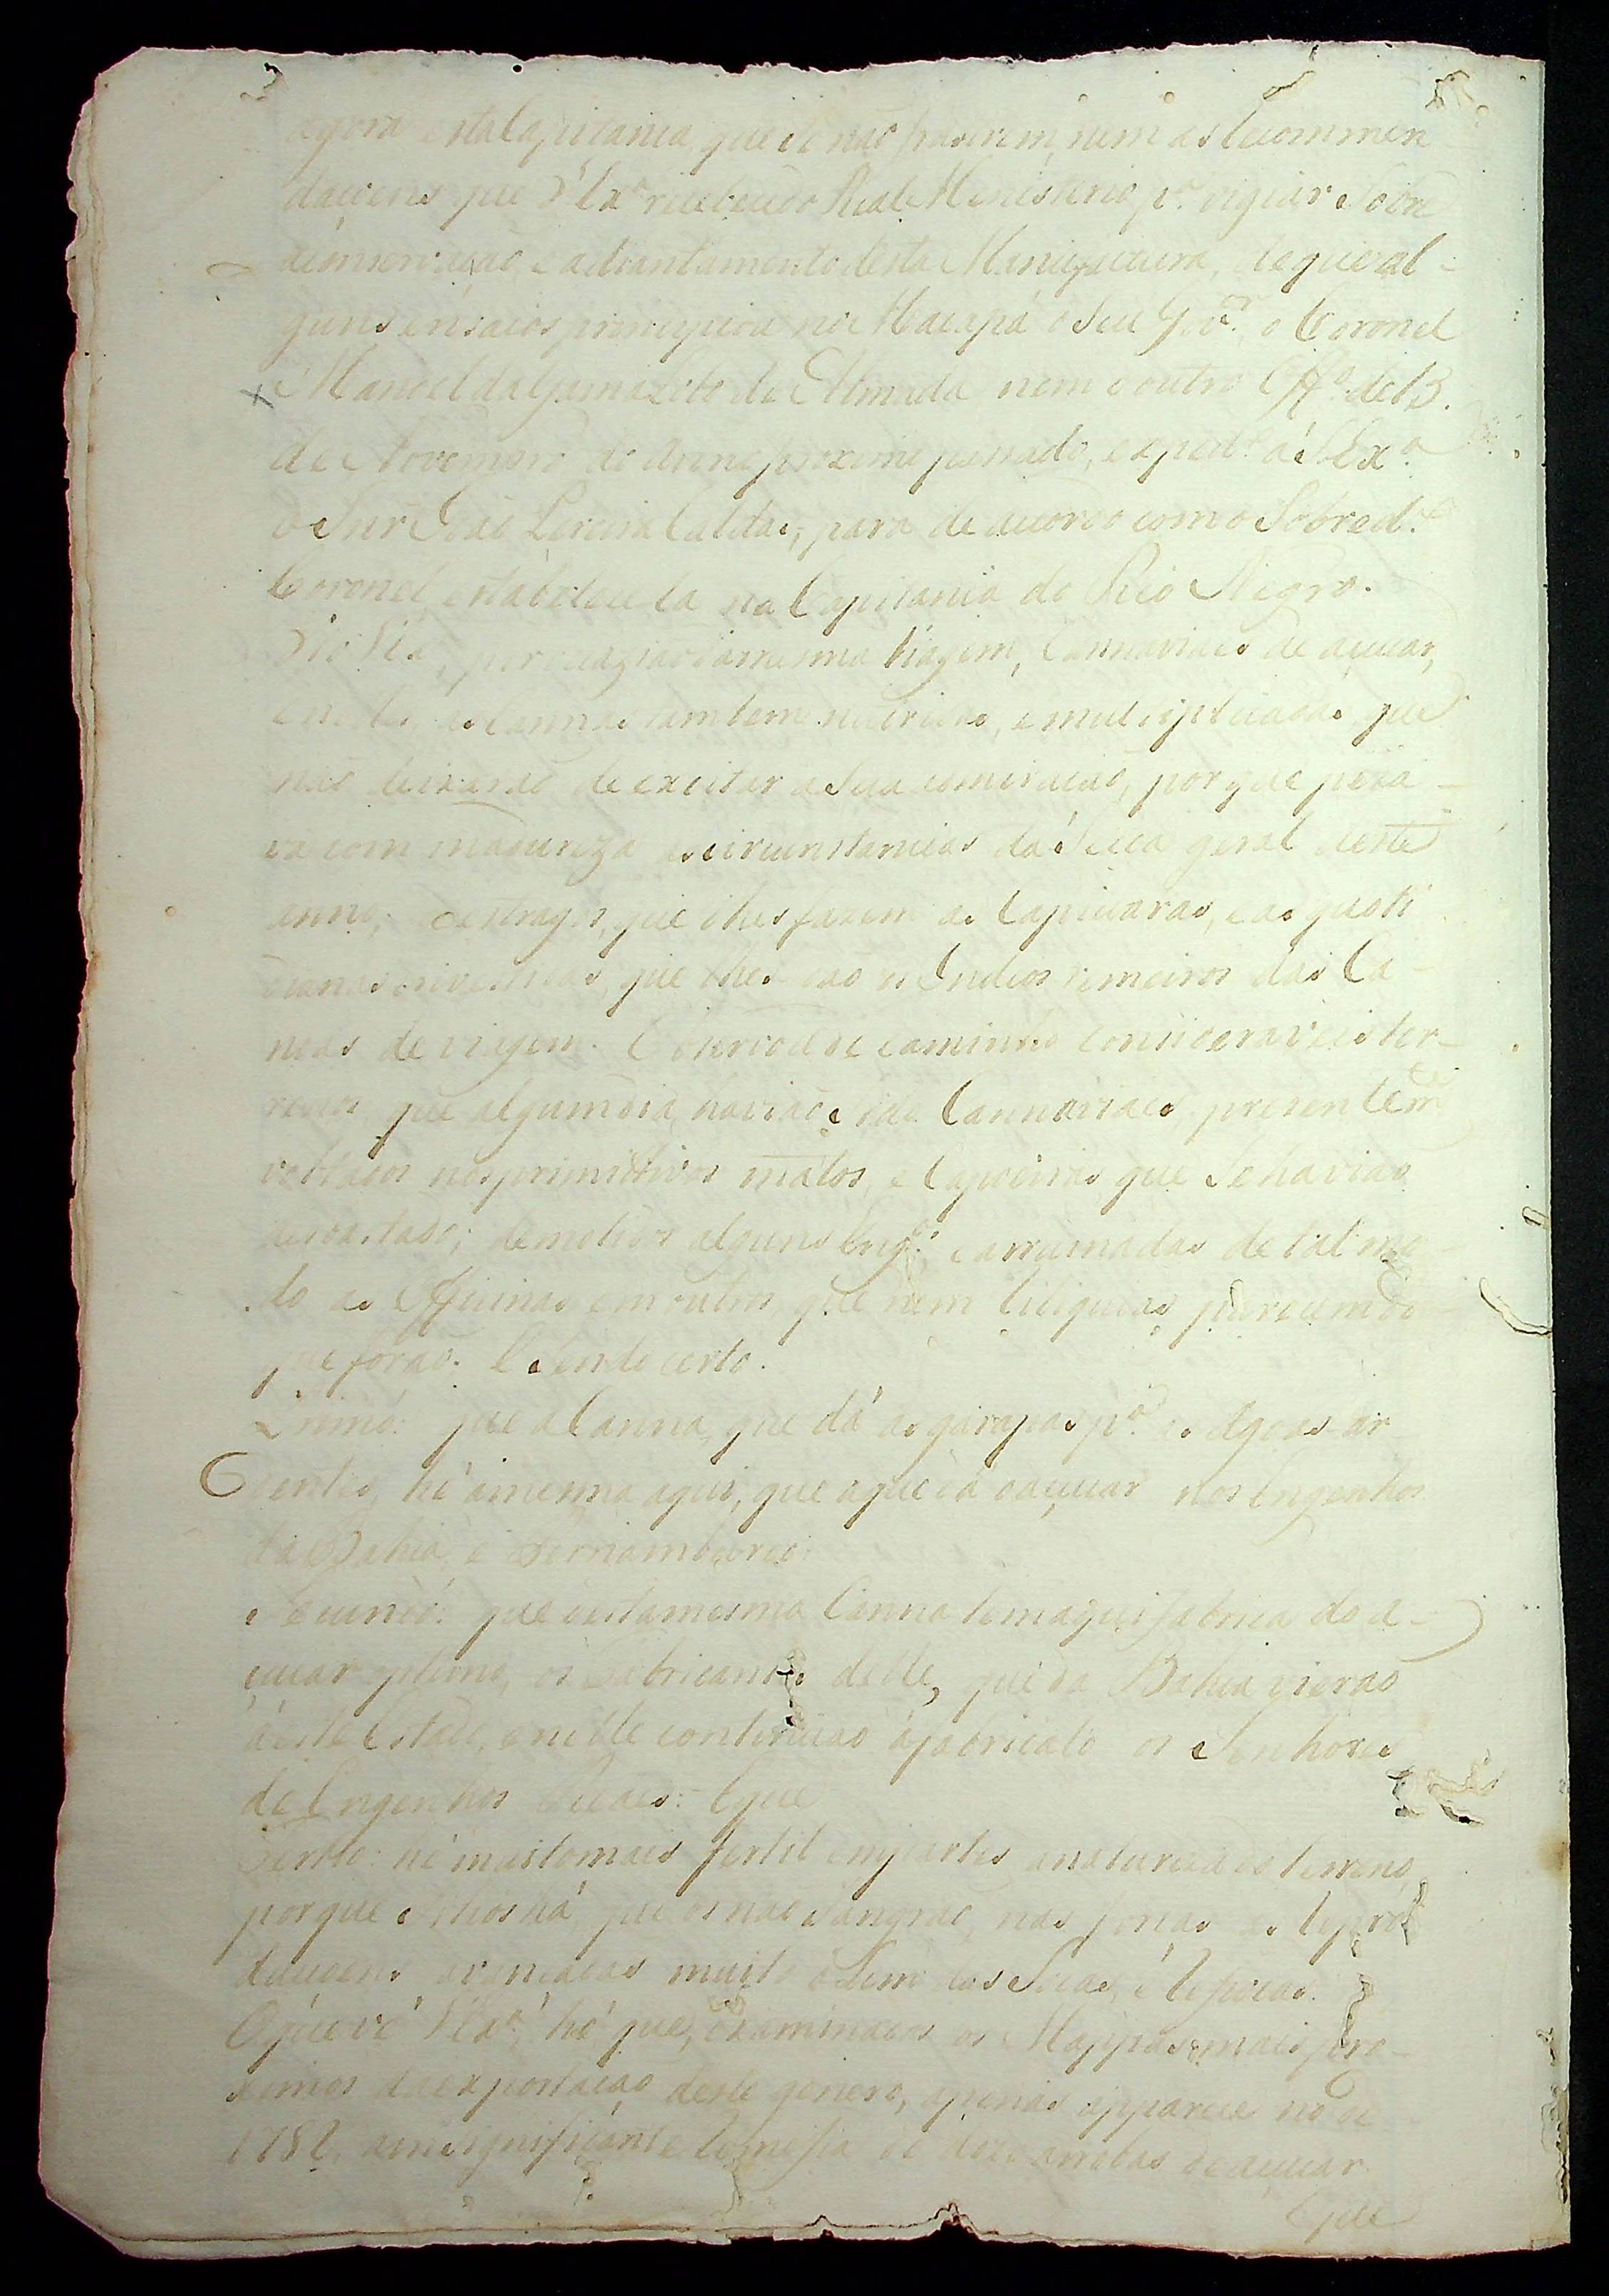 agora esta Capitania, que se não fizerem, nem as recommen
daçoens que V Exª recebeu do Real Ministerio pª vigiar sobre
a conservação, e adiantamento desta Manufactura, de que al-
guns ensaios principiou no Macapá o seu Govor o Coronel
Manoel da Gama Lobo de Almada nem o outro Offº de 13.
de Novembro do anno proximo passado, expedº á S. Exª
o Snr João Pereira Caldas, para de acordo com o Sobredº
Coronel estabelece la na Capitania do Rio Negro.
Vio V Exª, por occazião da mesma Viagem, Cannaviaes de açucar,
e nelles as cannas tambem nutridas, e multiplicadas que
não deixarão de excitar a Sua admiração, porque peza
va com madureza as circunstancias da Secca geral deste
anno; os estragos, que lhes fazem as Capivaras, e as quoti
dianas investidas, que lhes dão os Indios remeiros das Ca-
noas de viagem. Observou de caminho consideraveis ter-
renos que algum dia havião sido Cannaviaes, presentemte
voltados nos primitivos matos, e Capoeiras que se havião
devastado; demolidos alguns Engos, e arruinadas de tal mo
do as Officinas em outros, que nem reliquias parecem do
que forão. E Sendo certo.
Primo: que a Canna, que dá as garapas pª as Agoas ar
dentes, hé a mesma aqui, que a que dá o açucar nos Engenhos
da Bahia, e Pernambuco:
Secundo: que desta mesma Canna tem aqui fabricado a-
çucar optimo, os Fabricantes delle, que da Bahia vierão
a este Estado, e nelle continuão a fabricalo os Senhores
de Engenhos Reaes: E que
Tertio: hé muito mais fertil em partes a natureza do terreno,
porque Sitios há, que os não Sangrão, nas
daçoens muito alem das Suas Epocas.
O que vê V Exª, hé que, examinados os Mappas mais pro-
ximos da exportação deste genero, apenas apparece no de
1782. a insignificante remessa de doze arrobas de açucar.
E que